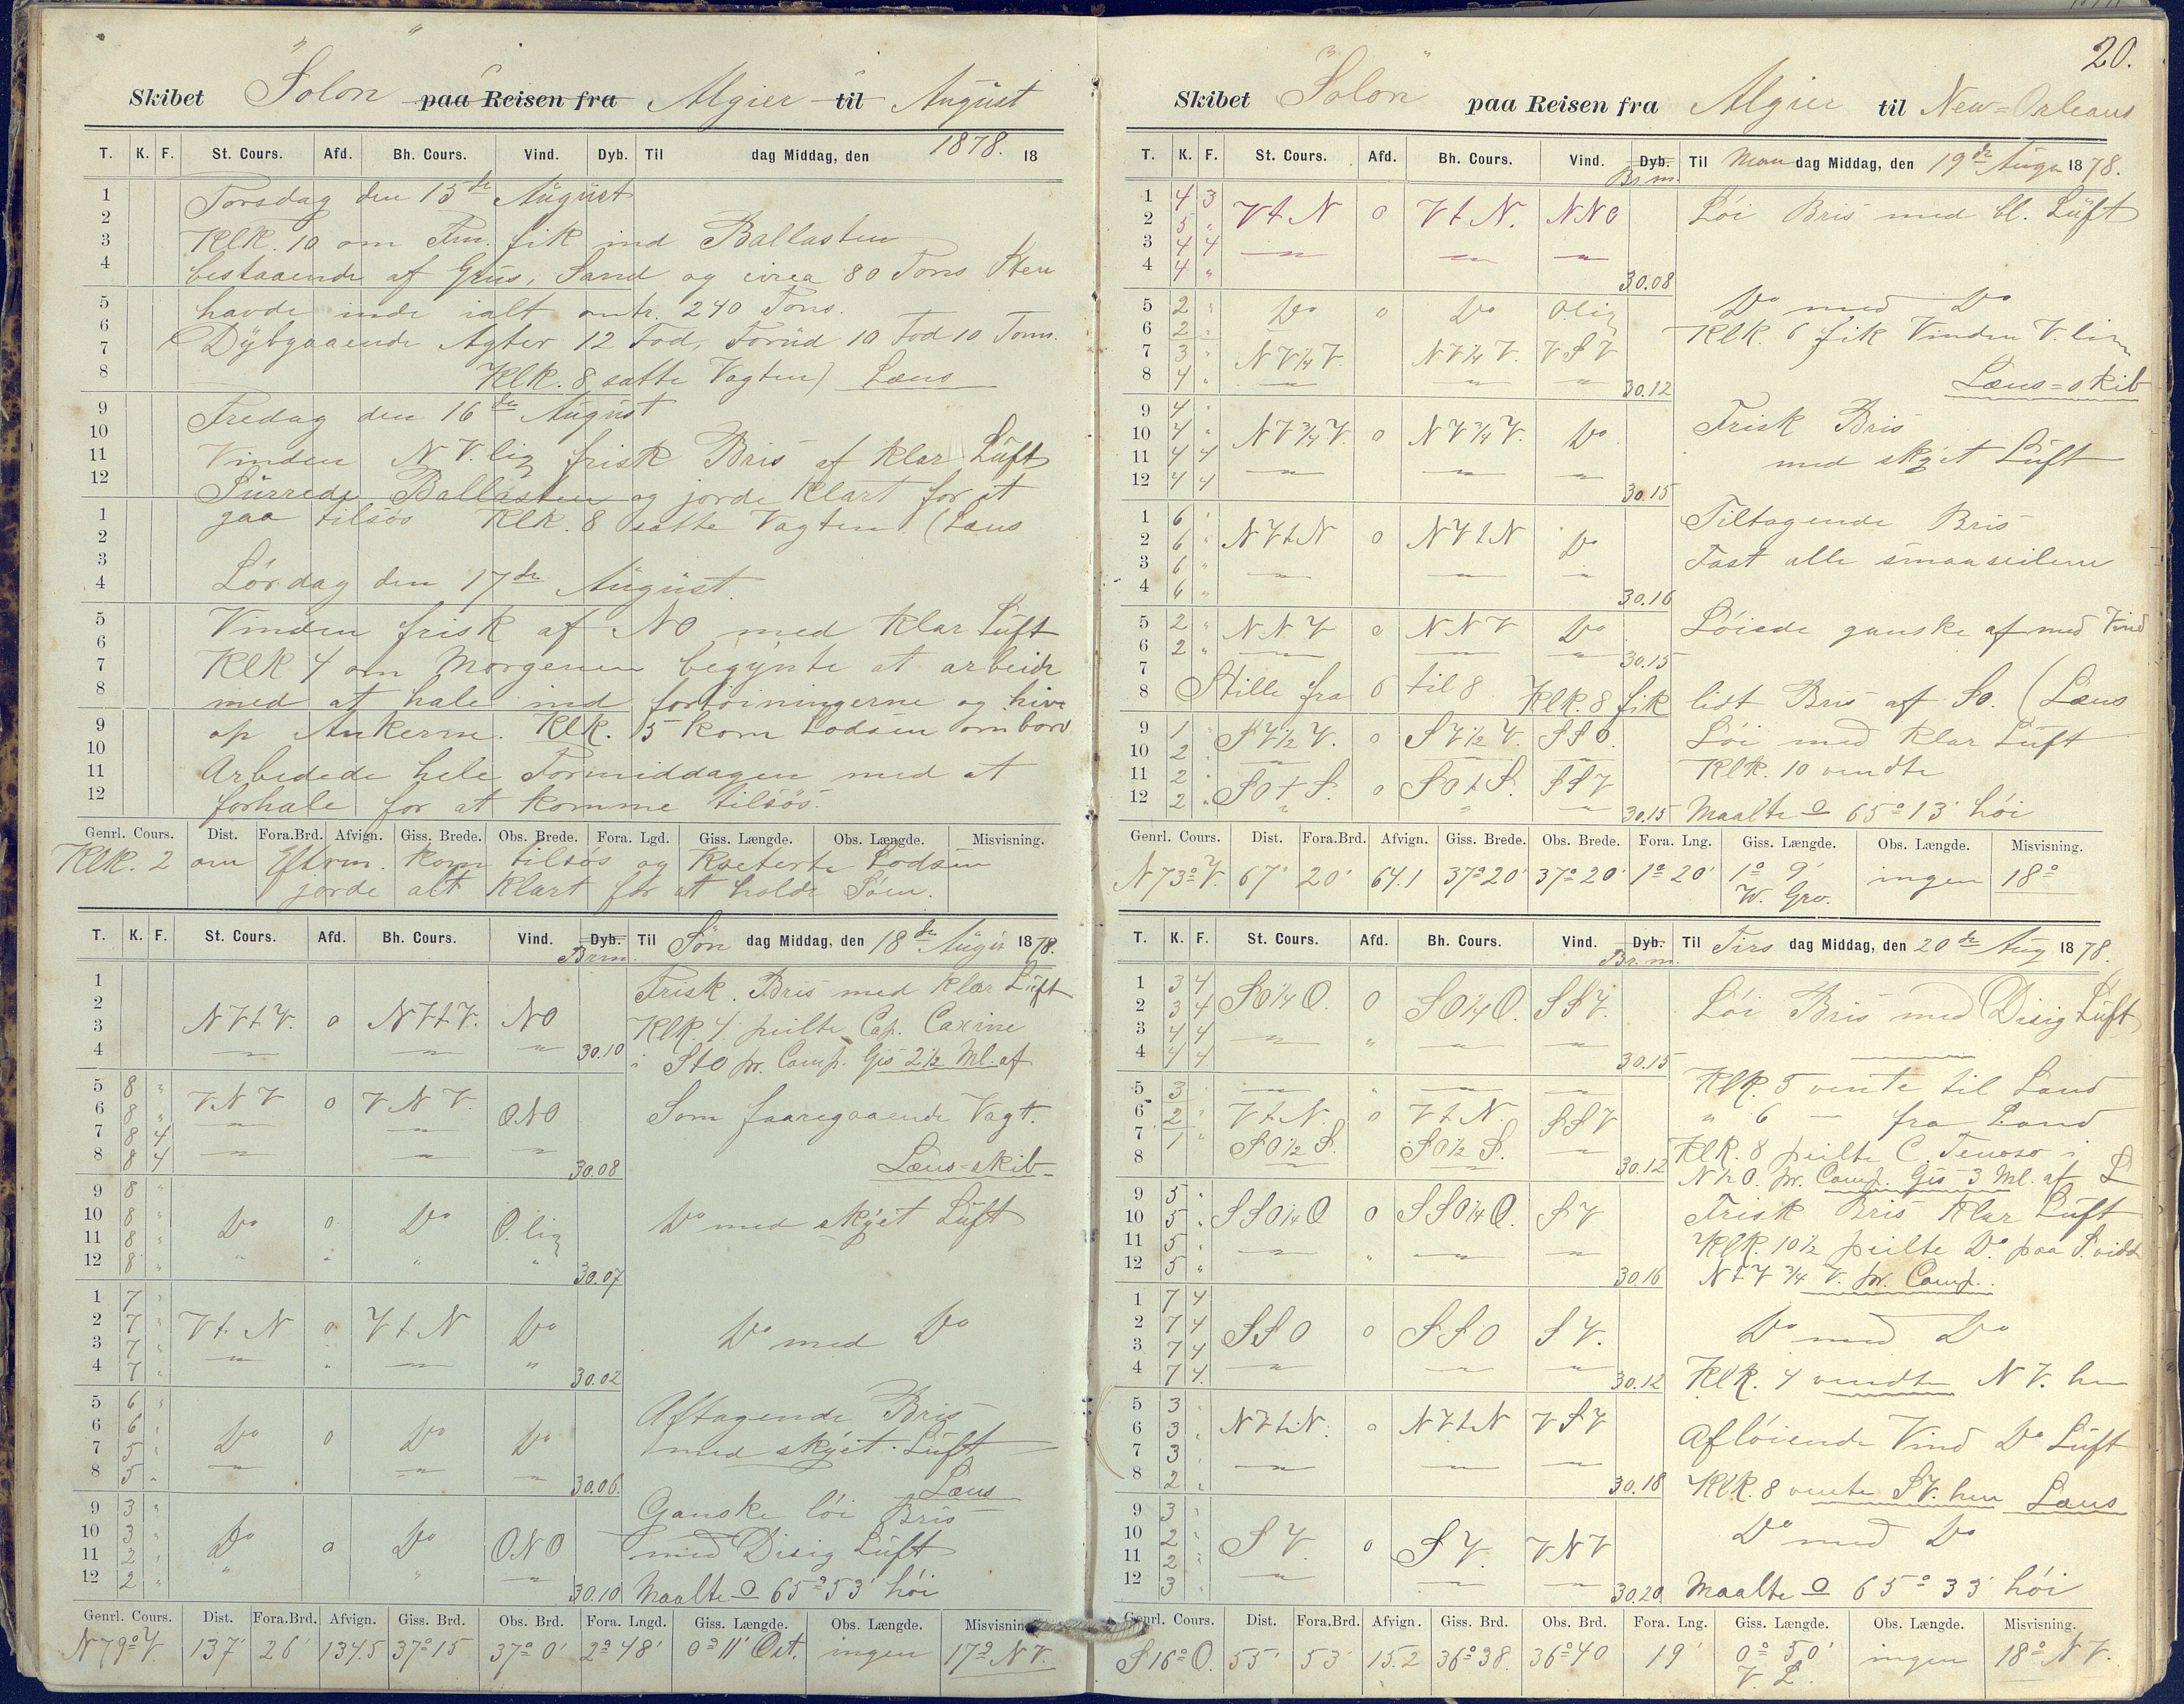 Skibet "Solon" paa Reisen fra Algier til August
T. K. F. St. Cours. Afd. Bh. Cours. Vind. Dyb. Til dag Middag, den 1878. 18
1 Torsdag den 15de August
2 Klk. 10 om Fm. fik ind Ballasten
3
4 bestaaende af Grus, Sand og circa 80 Tons Sten
5 havde inde ialt omtr. 240 Tons.
6 Dybgaaende Agter 12 Fod, Forud 10 Fod 10 Tom.
7
8 Klk. 8 satte Vagten) Læns
9 Fredag den 16de August
10
11 Vinden N V.lig frisk Bris af Klar Luft
12 Surrede Ballasten og jorde Klart for at
1 gaa tilsøs Klk. 8 satte Vagten (Læns
2
3
4 Lørdag den 17de August.
5 Vinden frisk af NO med Klar Luft
6
7 Klk 4 om Morgenen begynte at arbeide
8 med at hale ind fortøiningerne og hive
9 op Ankerne. Klk. 5 kom Lodsen ombord
10
11 Arbedede hele Formiddagen med at
12 forhale for at komme tilsøs.
Genrl. Cours. Dist. Fora.Brd. Afvign. Giss. Brede. Obs. Brede. Fora. Lgd. Giss. Længde. Obs. Længde. Misvisning.
Klk. 2 om Efterm. kom tilsøs og Lodsen
jorde alt Klart for at holde Søen.
T. K. F. St. Cours. Afd. Bh. Cours. Vind. Dyb. Til Søn dag Middag, den 18de Augu 1878.
Barm.
1 Frisk Bris med Klar Luft
2 N V t V. 0 N V t V. NO
3 Klk. 4 peilte Cap. Caxine
4 " " " 30.10 i StO pr. Comp. Gis 2 1/2 Ml. af
5 8 " V N V 0 V N V. ONO
6 8 " " " Som faaregaaende Vagt.
7 8 4
8 8 4 " " " 30.08 Læns-skib
9 8 "
10 8 " Do 0 Do O.lig Do med skyet Luft
11 8 "
12 8 " " " " " 30.07
1 7 "
2 7 " V t N 0 V t N Do Do med Do
3 7 "
4 7 " " " " " 30.02
5 6 " Aftagende Bris
6 6 " Do 0 Do Do
7 5 " med skyet Luft
8 5 " " " " 30.06. Læns
9 3 " Ganske löi Bris
10 3 " Do 0 Do ONO
11 2 " med Disig Luft
12 2 " " " " 30.10 Maalte O 65°53' höi
Genrl. Cours. Dist. Fora.Brd. Afvign. Giss. Brd. Obs. Brd. Fora. Lngd. Giss. Længde. Obs. Længde. Misvisning
N 79° V. 137' 26' 134.5 37°15 37° 0' 2° 48' 0° 11' Ost. ingen 17° N V.
20.
Skibet "Solon" paa Reisen fra Algier til New-Orleans
T. K. F. St. Cours. Afd. Bh. Cours. Vind. Dyb. Til Man dag Middag, den 19de Augu 1878.
Br.m.
1 4 3 V t N 0 V t N. NNO Löi Bris med bl. Luft
2 5 "
3 4 4 " " "
4 4 " 30.08
5 2 " Do 0 Do O.lig Do med Do
6 2 " Klk. 6 fik Vinden V.lig
7 3 " N V 1/4 V. N V 1/4 V. V S V
8 4 " " " " 30.12 Læns-skib
9 4 " Frisk Bris
10 4 " N V 3/4 V. 0 N V 3/4 V. Do
11 4 4 " " " med skyet Luft
12 4 4 30.15
1 6 " Tiltagende Bris
2 6 " N V t N 0 N V t N Do
3 6 " " " " Fast alle smaaseilene
4 6 " 30.16
5 2 " N N V 0 N N V Do Löiede ganske af med Vind
6 2 " " " " 30.15
7
8 Stille fra 6 til 8 Klk. 8 fik lidt Bris af So. (Læns
9 1 " S V 1/2 V. 0 S V 1/2 V. SSO. Löi med Klar Luft
10 2 " " " "
11 2 " SO t S. 0 SO t S. SSV Klk. 10 vendte
12 2 " " " " 30.15 Maalte O 65°13' höi
Genrl. Cours. Dist. Fora.Brd. Afvign. Giss. Brede. Obs. Brede. Fora. Lng. Giss. Længde. Obs. Længde. Misvisning.
N 73° V. 67' 20' 64.1 37°20' 37°20' 1° 20' 1° 9' ingen 18°
W. Grv.
T. K. F. St. Cours. Afd. Bh. Cours. Vind. Dyb. Til Tirs dag Middag, den 20de Aug 1878.
Br.m.
1 3 4
2 3 4 SO 1/4 O. 0 SO 1/4 O. SSV. Löi Bris med Disig Luft
3 4 4 " " " "
4 4 4 30.15
5 3 " " " " " Klk. 5 vente til Land
6 2 " V t N. 0 V t N. SSV " 6 — fra Land
7 1 " SO 1/2 S. SO 1/2 S. " Klk. 8 peilte C. Tenoso i
8 30.12 N t O. pr. Comp. Gis 3 Ml. af L
9 5 " Frisk Bris Klar Luft
10 5 " SSO 1/4 O 0 SSO 1/4 O. SV
11 5 " " " " " Klk. 10 1/2 peilte Do. paa
12 5 " 30.16 N t V 3/4 V. pr. Comp.
1 7 4
2 7 4 SSO 0 SSO SV. Do med Do
3 7 4
4 7 4 " " " 30.12 Klk. 4 vendte N V. hen
5 3 "
6 3 " N V t N. 0 N V t N V S V Afløiende Vind Do Luft
7 3 "
8 2 " " " " 30.18 Klk. 8 vente SV. hen Læns
9 3 "
10 2 " SV. 0 SV. V N V Do med Do
11 2 "
12 3 " " " " 30.20 Maalte O 65°33' höi
Genrl. Cours. Dist. Fora.Brd. Afvign. Giss. Brd. Obs. Brd. Fora. Lng. Giss. Længde. Obs. Længde. Misvisning.
S 16° O. 55' 53' 15.2 36°38. 36°40 19' 0° 50' ingen 18° N V.
V. L.